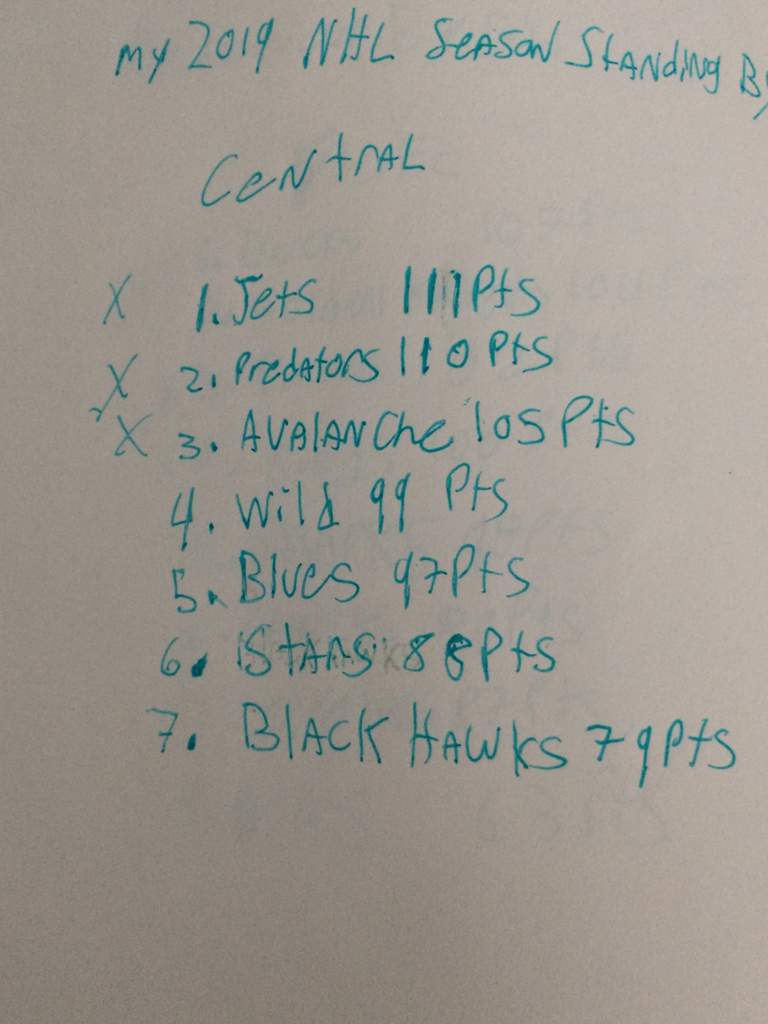 my 2019 NHL SEASON StANding By
CeNtrAL
X 1. Jets 111 Pts
X 2. Predators 110 Pts
X 3. AVALANChe 105 Pts
4. Wild 99 Pts
5. Blues 97 Pts
6. StArs 88 Pts
7. BlACK HAWKs 79 Pts